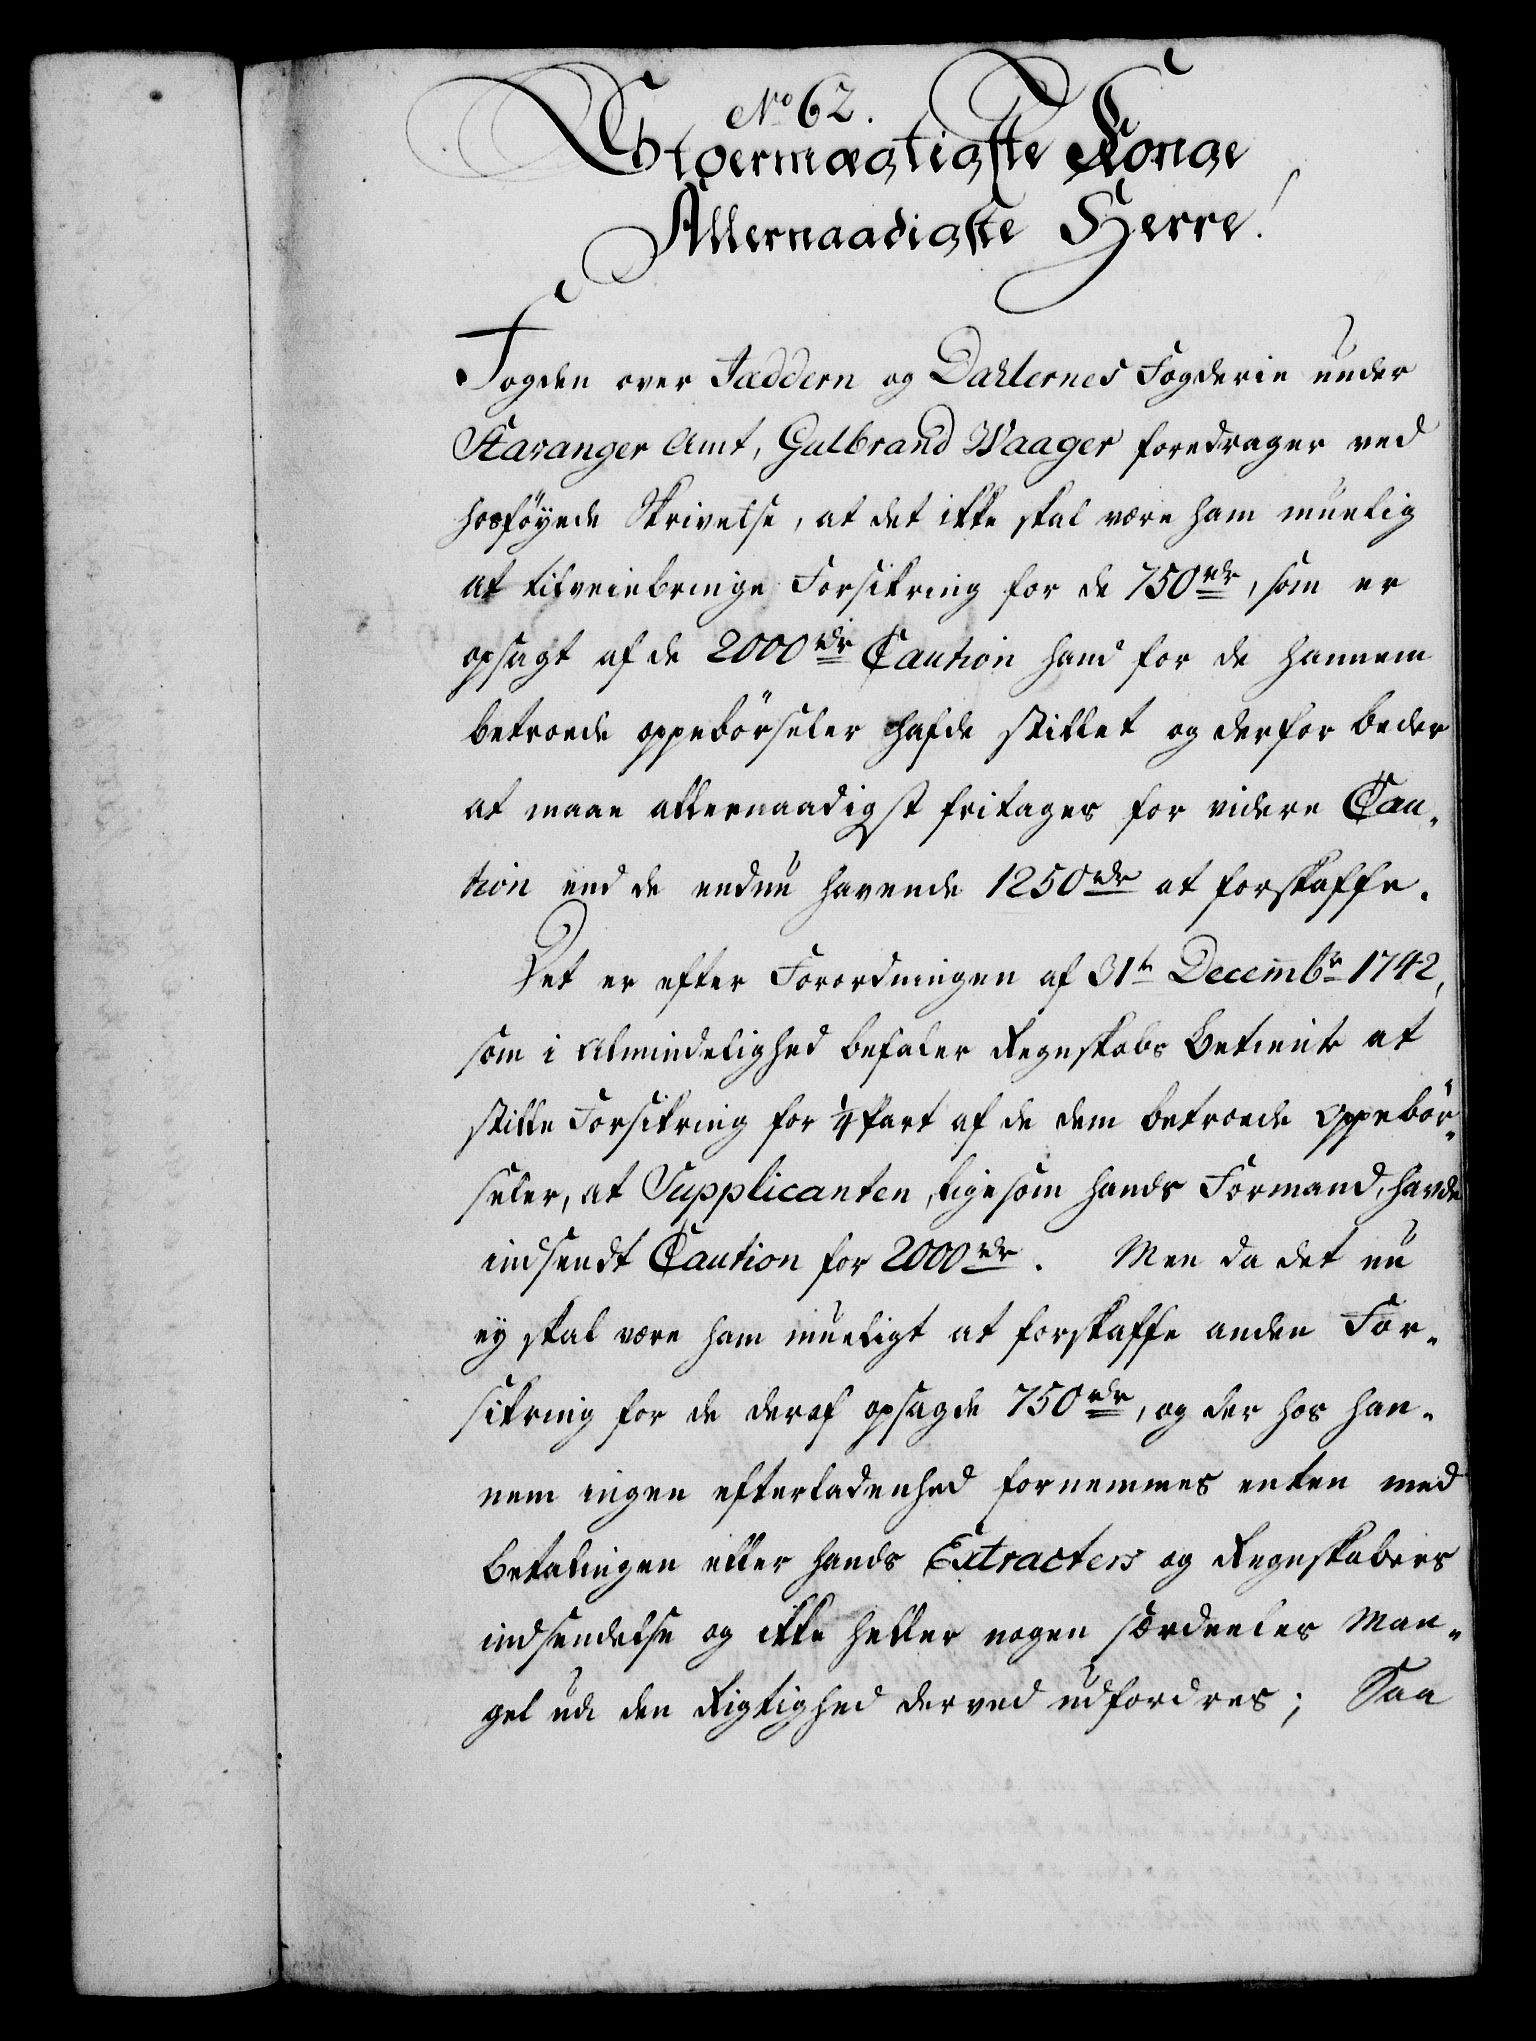 No 62.
Stormægtigste Konge
Allernaadigste Herre!
Fogden over Jæddern og Dahlernes Fogderie under
Stavanger Amt, Gulbrand Waager foredrager ved
hosföyede Skrivelse, at det ikke skal være ham muelig
at tilveiebringe Forsikring for de 750 rdr, som er
opsagt af de 2000 rdr Caution hand for de hannem
betroede oppebörseler hafde stillet og derfor beder
at maae allernaadigst fritages for videre Cau-
tion end de endnu havende 1250 rdr at forskaffe.
Det er efter Forordningen af 31te Decembr 1742,
som i Almindelighed befaler Regnskabs Betiente at
stille Forsikring for 1/4 part af de dem betroede Oppebör-
seler, at Supplicanten, ligesom hands Formand, havde
indsendt Caution for 2000 rdr. Men da det nu
ey skal være ham mueligt at forskaffe anden For-
sikring for de deraf opsagde 750 rdr, og der hos han-
nem ingen efterladenhed fornemmes enten med
Betalingen eller hands Extracters og Regnskabers
indsendelse og ikke heller nogen særdeeles Man-
gel udi den Rigtighed derved udfordres; Saa